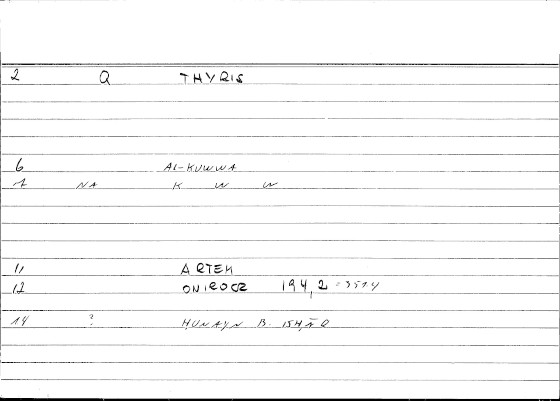 2 Q THYRIS
6 Al-KUWWA
7 NA K W W
11 ARTEM
12 ONIROCR 194,2 = 3514
14 ? ḤUNAYN B. ISḤĀQ